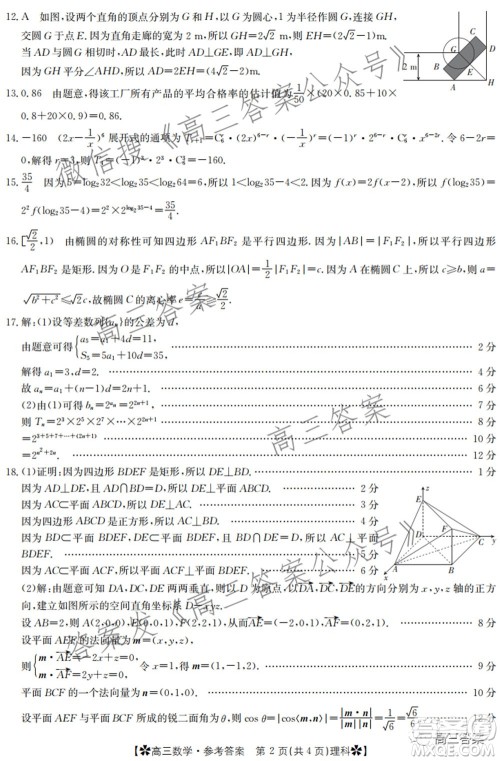 12. A 如图,设两个直角的顶点分别为 G 和 H,以 G 为圆心,1 为半径作圆 G,连接 GH,
交圆 G 于点 E. 因为直角走廊的宽为 2 m,所以 GH=2√2 m,则 EH=(2√2-1)m.
当 AD 与圆 G 相切时,AD 最长,此时 AD⊥GE,即 AD⊥GH.
因为 GH 平分∠AHD,所以 AD=2EH=(4√2-2)m.
13. 0.86 由题意,得该工厂所有产品的平均合格率的估计值为 1/50 ×(20×0.85+10×
0.8+20×0.9)=0.86.
14. -160 (2x-1/x)⁶ 展开式的通项为
令 6-2r=
0,解得 r=3,则 T₄=(-1)³·2³·C₆³=-160.
15. 35/4 因为 5=log₂32<log₂35<log₂64=6,所以 1<log₂35-4<2. 因为 f(x)=2f(x-2),所以 f(log₂35)=
2² f(log₂35-4)=2²×2^(log₂35-4)=35/4.
16. [√2/2,1) 由椭圆的对称性可知四边形 AF₁BF₂ 是平行四边形. 因为|AB|=|F₁F₂|,所以平行四边形
AF₁BF₂ 是矩形. 因为 O 是 F₁F₂ 的中点,所以|OA|=1/2|F₁F₂|=c. 因为 A 在椭圆 C 上,所以 c≥b,则 a=
√(b²+c²)≤√2c,故椭圆 C 的离心率 e=c/a≥√2/2.
17. 解:(1)设等差数列{aₙ}的公差为 d,
由题意可得 { a₅=a₁+4d=11, S₅=5a₁+10d=35, 2 分
解得 a₁=3,d=2. 4 分
故 aₙ=a₁+(n-1)d=2n+1. 6 分
(2)由(1)可得 bₙ=2^aₙ=2^(2n+1), 7 分
则 Tₙ=2³×2⁵×2⁷×…×2^(2n+1) 8 分
=2^(3+5+7+…+(2n+1)) 10 分
=2^(n²+2n). 12 分
18. (1)证明:因为四边形 BDEF 是矩形,所以 DE⊥BD. 1 分
因为 AD⊥DE,且 AD∩BD=D,所以 DE⊥平面 ABCD. 2 分
因为 AC⊂平面 ABCD,所以 DE⊥AC. 3 分
因为四边形 ABCD 是正方形,所以 AC⊥BD. 4 分
因为 BD⊂平面 BDEF,DE⊂平面 BDEF,且 BD∩DE=D,所以 AC⊥平面
BDEF. 5 分
因为 AC⊂平面 ACF,所以平面 ACF⊥平面 BDEF. 6 分
(2)解:由题意可知 DA,DC,DE 两两垂直,则以 D 为原点,以DA,DC,DE的方向分别为 x,y,z 轴的正方
向,建立如图所示的空间直角坐标系 D-xyz.
设 AB=2,则
8 分
设平面 AEF 的法向量为 m=(x,y,z),
则 { m·AE=-2x+z=0, m·AF=2y+z=0, 令 x=1,得 m=(1,-1,2). 9 分
平面 BCF 的一个法向量为 n=(0,1,0). 10 分
设平面 AEF 与平面 BCF 所成的锐二面角为 θ,则 cos θ=|cos⟨m,n⟩|=|m·n|/|m||n|=1/√6=√6/6. 12 分
高三数学·参考答案 第 2 页(共 4 页)理科
微信搜《高三答案公众号》
高三答案
高三答案
高三答案